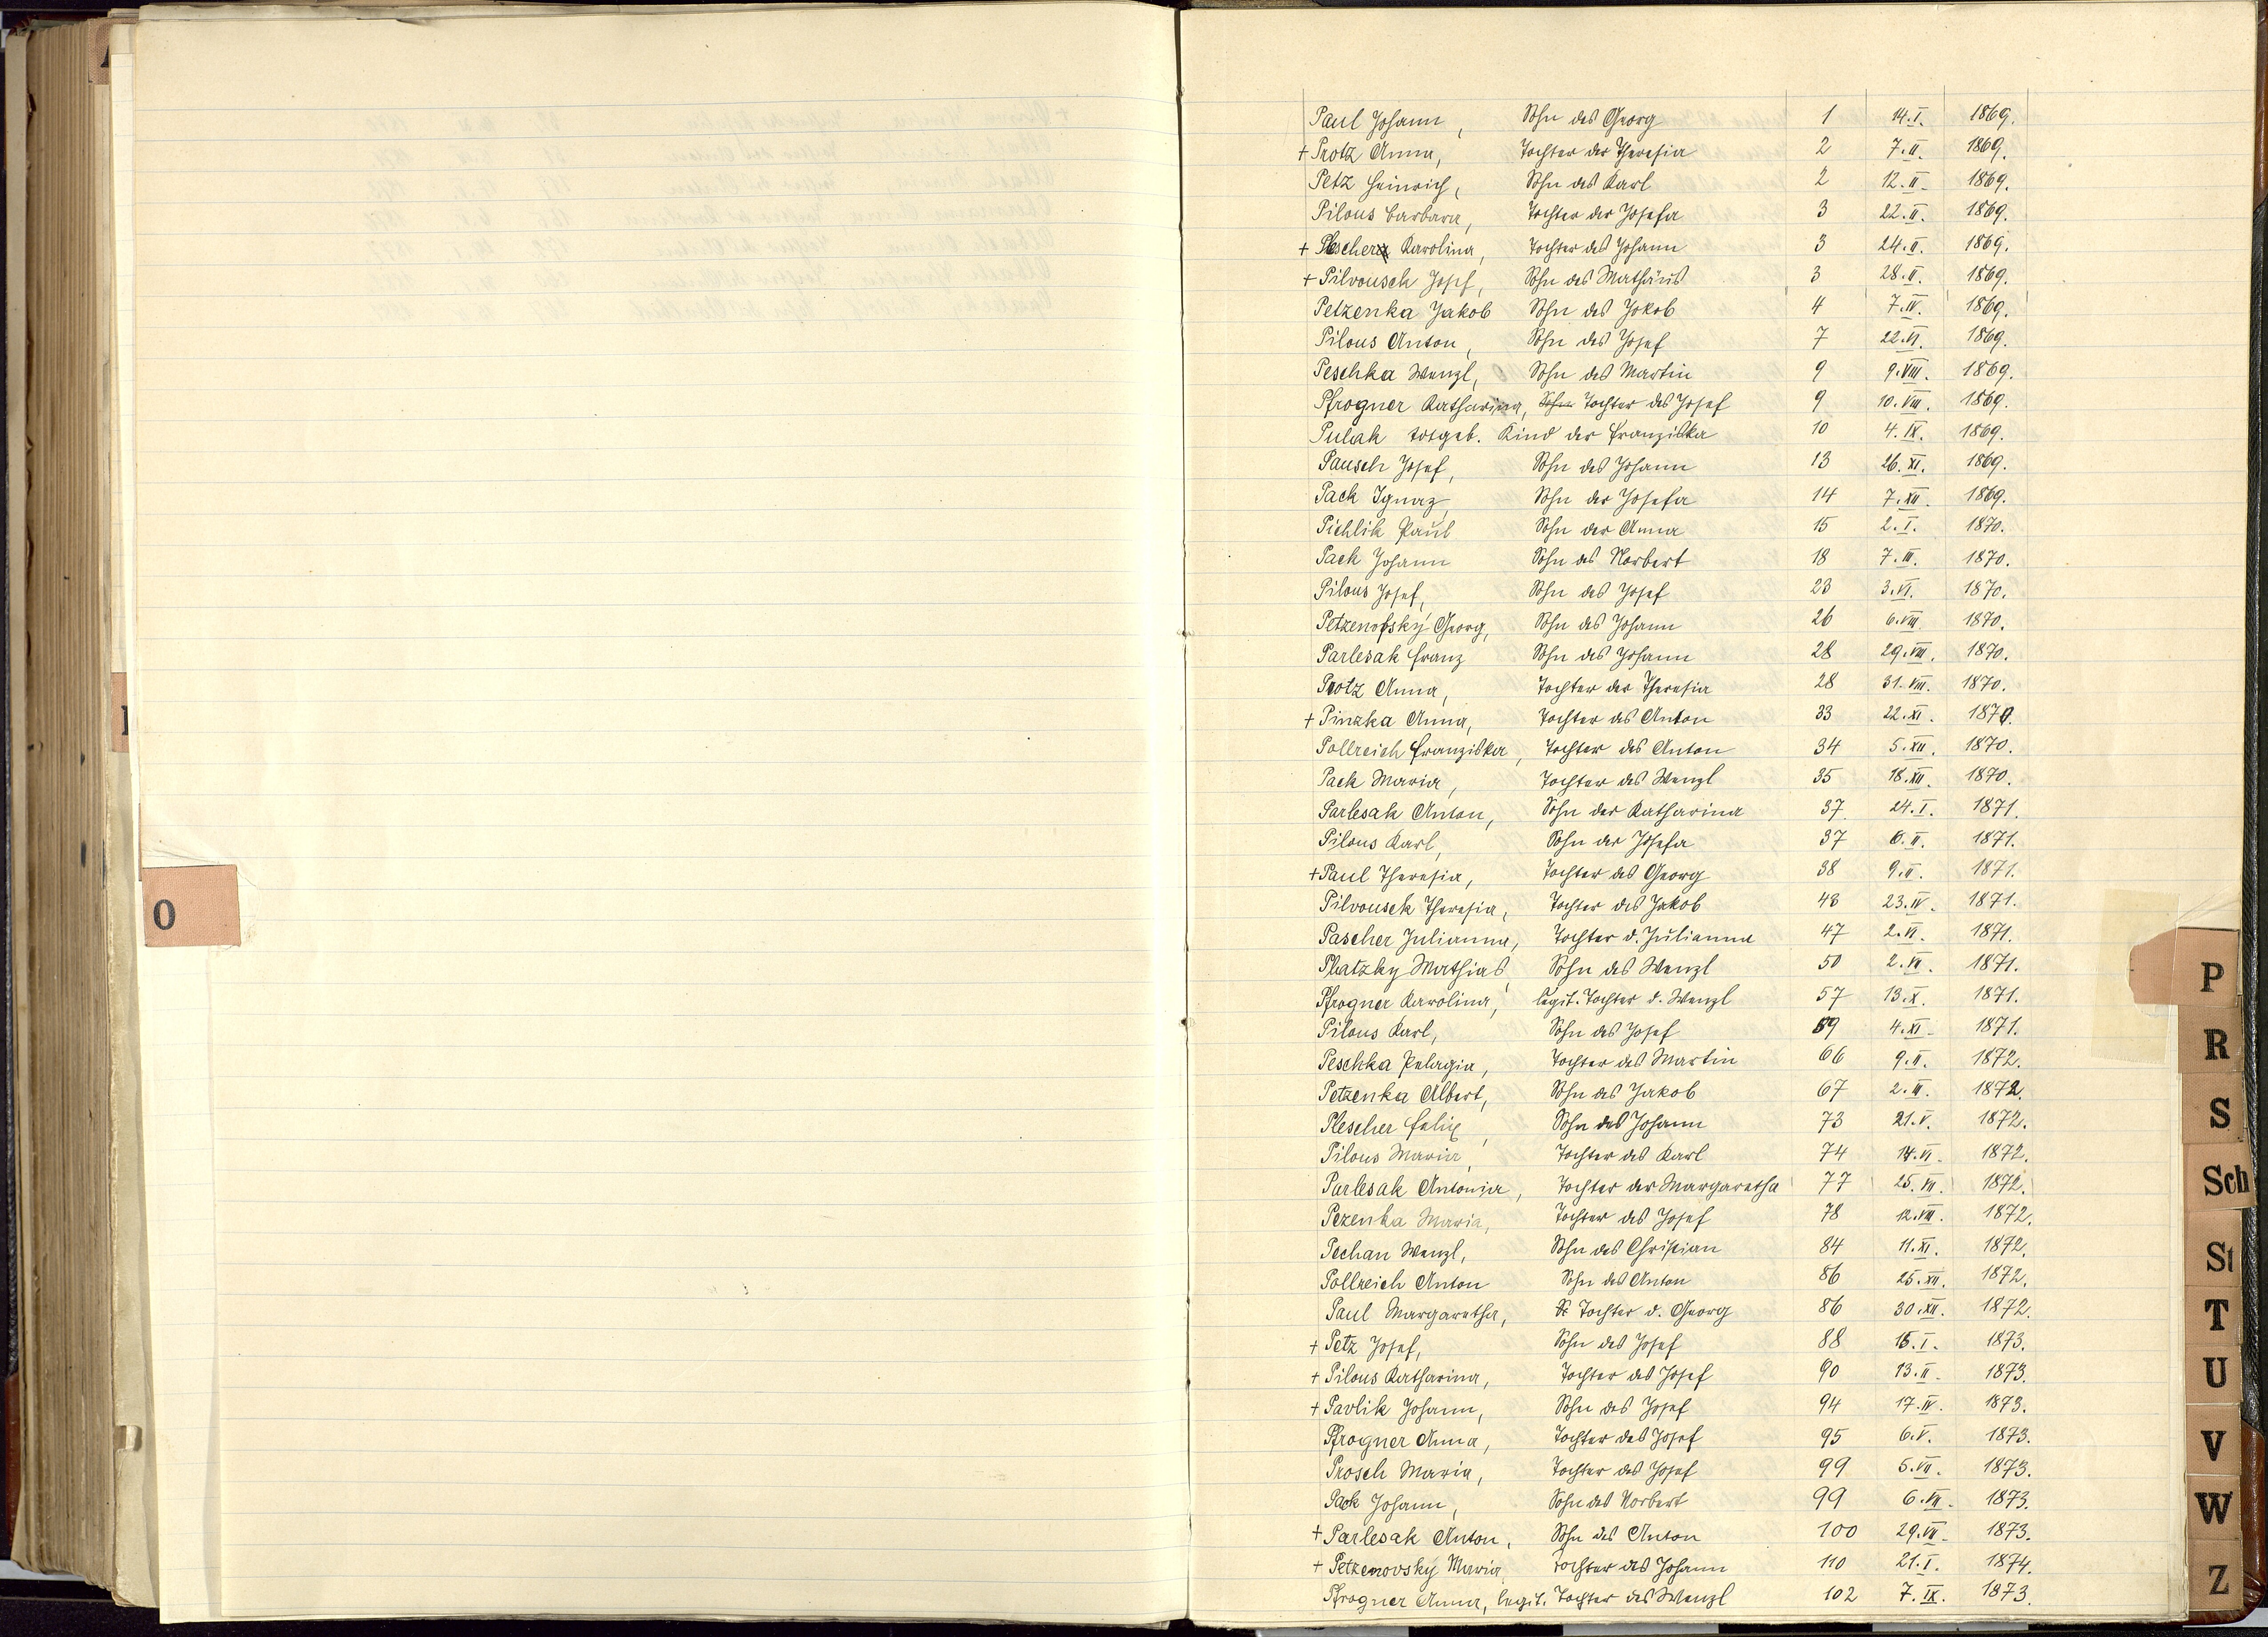 Paul Johann, Sohn des Georg 1 14.I. 1869.
+ Protz Anna, Tochter der Theresia 2 7.II. 1869.
Petz Heinrich, Sohn des Karl 2 12.II. 1869.
Pilous Barbara, Tochter der Josefa 3 22.II. 1869.
+ Plescher Karolina, Tochter des Johann 3 24.II. 1869.
+ Pilvousek Josef, Sohn des Mathäus 3 28.II. 1869.
Petzenka Jakob Sohn des Jakob 4 7.IV. 1869.
Pilous Anton, Sohn des Josef 7 22.VI. 1869.
Peschka Wenzl, Sohn des Martin 9 9.VIII. 1869.
Pfrogner Katharina, Sohn Tochter des Josef 9 10.VIII. 1869.
Pulak totgeb. Kind der Franziska 10 4.IX. 1869.
Pausch Josef, Sohn des Johann 13 26.XI. 1869.
Pack Ignaz, Sohn der Josefa 14 7.XII. 1869.
Pichlik Paul Sohn der Anna 15 2.I. 1870.
Pack Johann Sohn des Norbert 18 7.III. 1870.
Pilous Josef, Sohn des Josef 23 3.VI. 1870.
Petzenofsky Georg, Sohn des Johann 26 6.VIII. 1870.
Parlesak Franz Sohn des Johann 28 29.VIII. 1870.
Protz Anna, Tochter der Theresia 28 31.VIII. 1870.
+ Pinzka Anna, Tochter des Anton 33 22.XI. 1870.
Pollreich Franziska, Tochter des Anton 34 5.XII. 1870.
Pack Maria, Tochter des Wenzl 35 18.XII. 1870.
Parlesak Anton, Sohn der Katharina 37 24.I. 1871.
Pilous Karl, Sohn der Josefa 37 6.II. 1871.
+ Paul Theresia, Tochter des Georg 38 9.II. 1871.
Pilvousek Theresia, Tochter des Jakob 43 23.IV. 1871.
Pascher Julianna, Tochter d. Julianna 47 2.VI. 1871.
Platzky Mathias, Sohn des Wenzl 50 2.VII. 1871.
Pfrogner Karolina, legit. Tochter d. Wenzl 57 13.X. 1871.
Pilous Karl, Sohn des Josef 59 4.XI. 1871.
Peschka Pelagia, Tochter des Martin 66 9.II. 1872.
Petzenka Albert, Sohn des Jakob 67 2.III. 1872.
Plescher Felix, Sohn des Johann 73 21.V. 1872.
Pilous Maria, Tochter des Karl 74 14.VI. 1872.
Parlesak Antonia, Tochter der Margaretha 77 25.VII. 1872.
Pezenka Maria, Tochter des Josef 78 12.VIII. 1872.
Pechan Wenzl, Sohn des Christian 84 11.XI. 1872.
Pollreich Anton Sohn des Anton 86 25.XII. 1872.
Paul Margaretha, Tochter d. Georg 86 30.XII. 1872.
+ Petz Josef, Sohn des Josef 88 15.I. 1873.
+ Pilous Katharina, Tochter des Josef 90 13.II. 1873.
+ Pavlik Johann, Sohn des Josef 94 17.IV. 1873.
Pfrogner Anna, Tochter des Josef 95 6.V. 1873.
Prosch Maria, Tochter des Josef 99 5.VII. 1873.
Pack Johann, Sohn des Norbert 99 6.VII. 1873.
+ Parlesak Anton, Sohn des Anton 100 29.VII. 1873.
+ Petzenovsky Maria Tochter des Johann 110 21.I. 1874.
Pfrogner Anna, legit. Tochter des Wenzl 102 7.IX. 1873.
O
P
R
S
Sch
St
T
U
V
W
Z